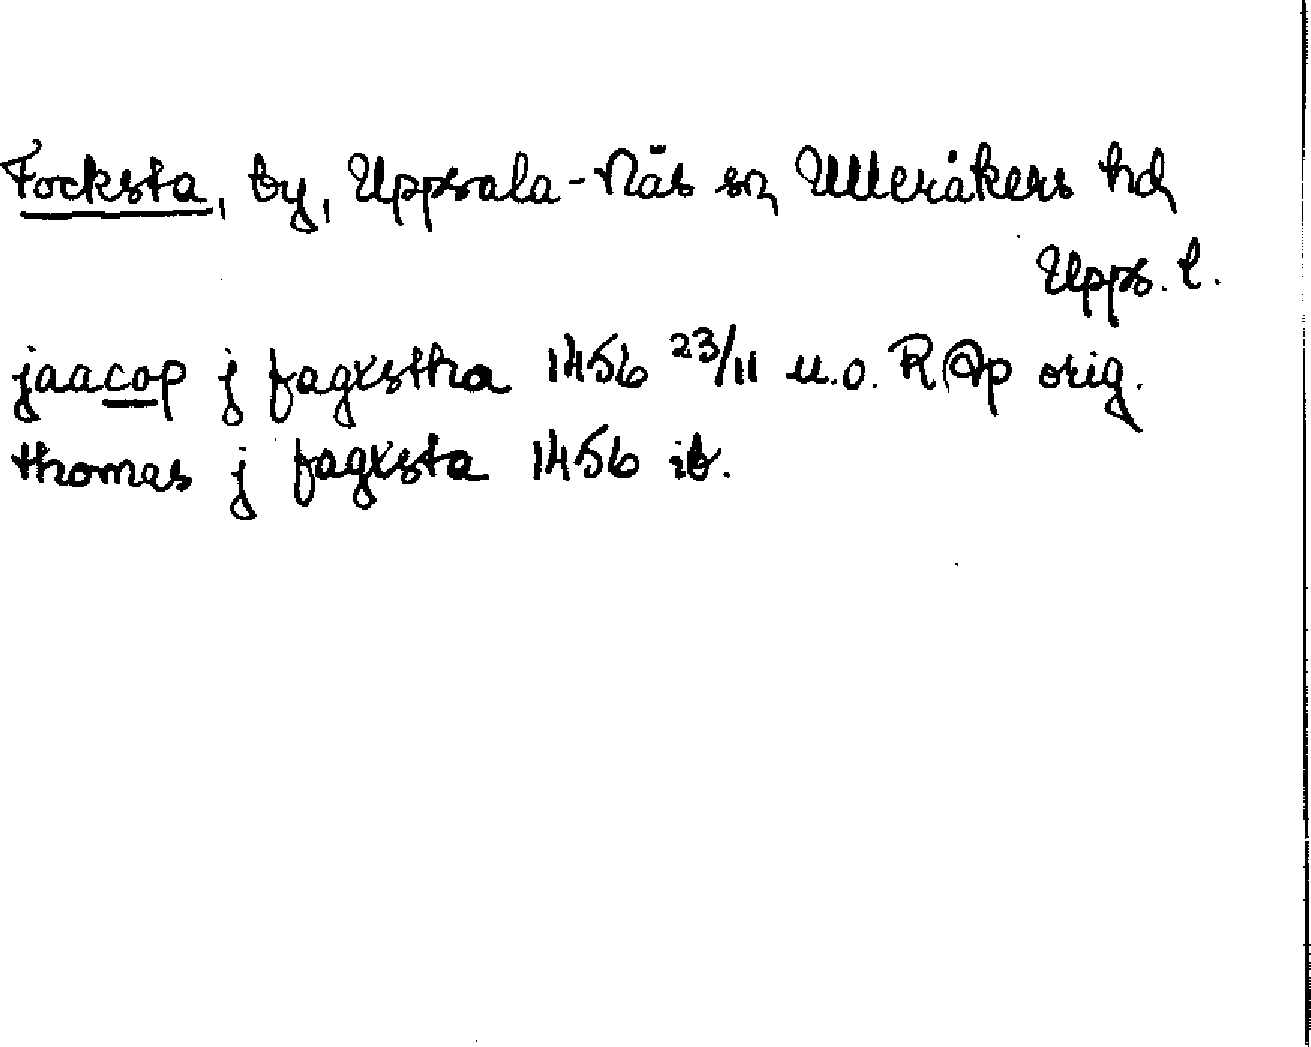 Focksta, by, Uppsala-Näs sn, Ulleråkers hd,
Upps. l.
jaacop j fagxstha 1456 23/11 u.o. RAp orig.
thomas j fagxsta 1456 ib.